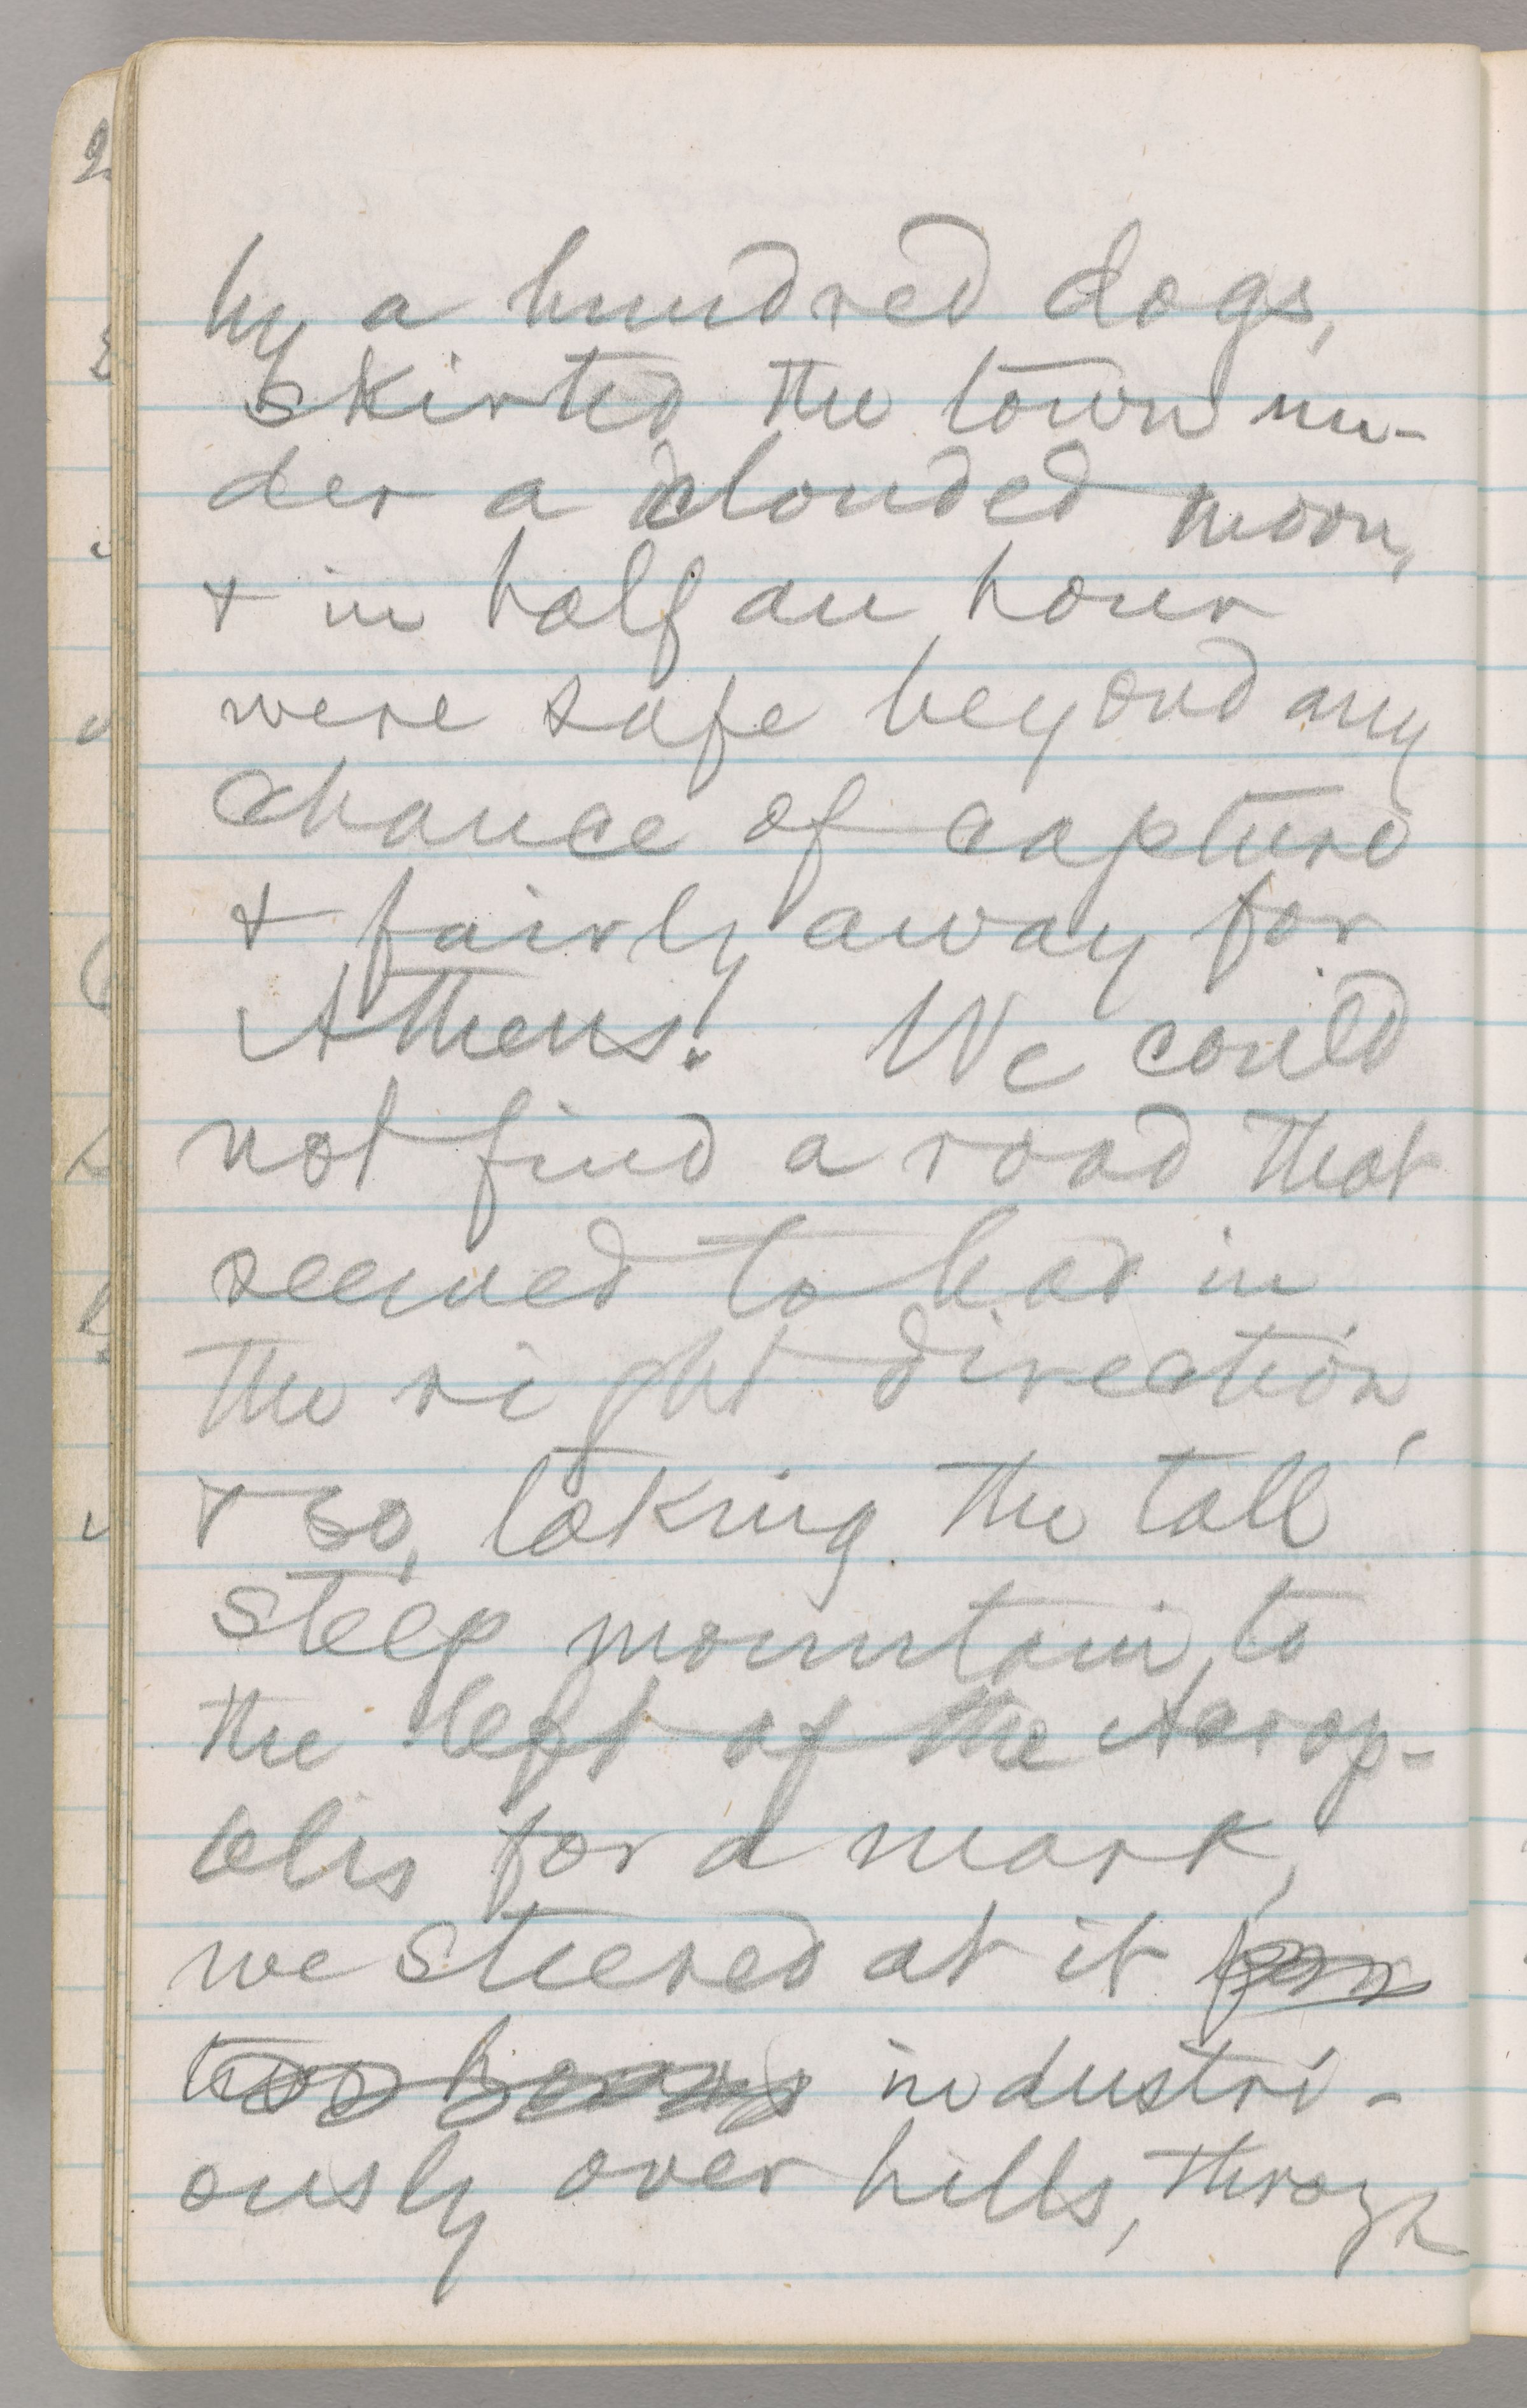 by a hundred dogs,
skirted the town un-
der a clouded moon,
& in half an hour
were safe beyond any
chance of capture
& fairly away for
Athens! We could
not find a road that
seemed to lead in
the right direction,
& so, taking the tall
steep mountain to
the left of the Acrop-
olis for a mark,
we steered at it for
two hours industri-
ously over hills, through